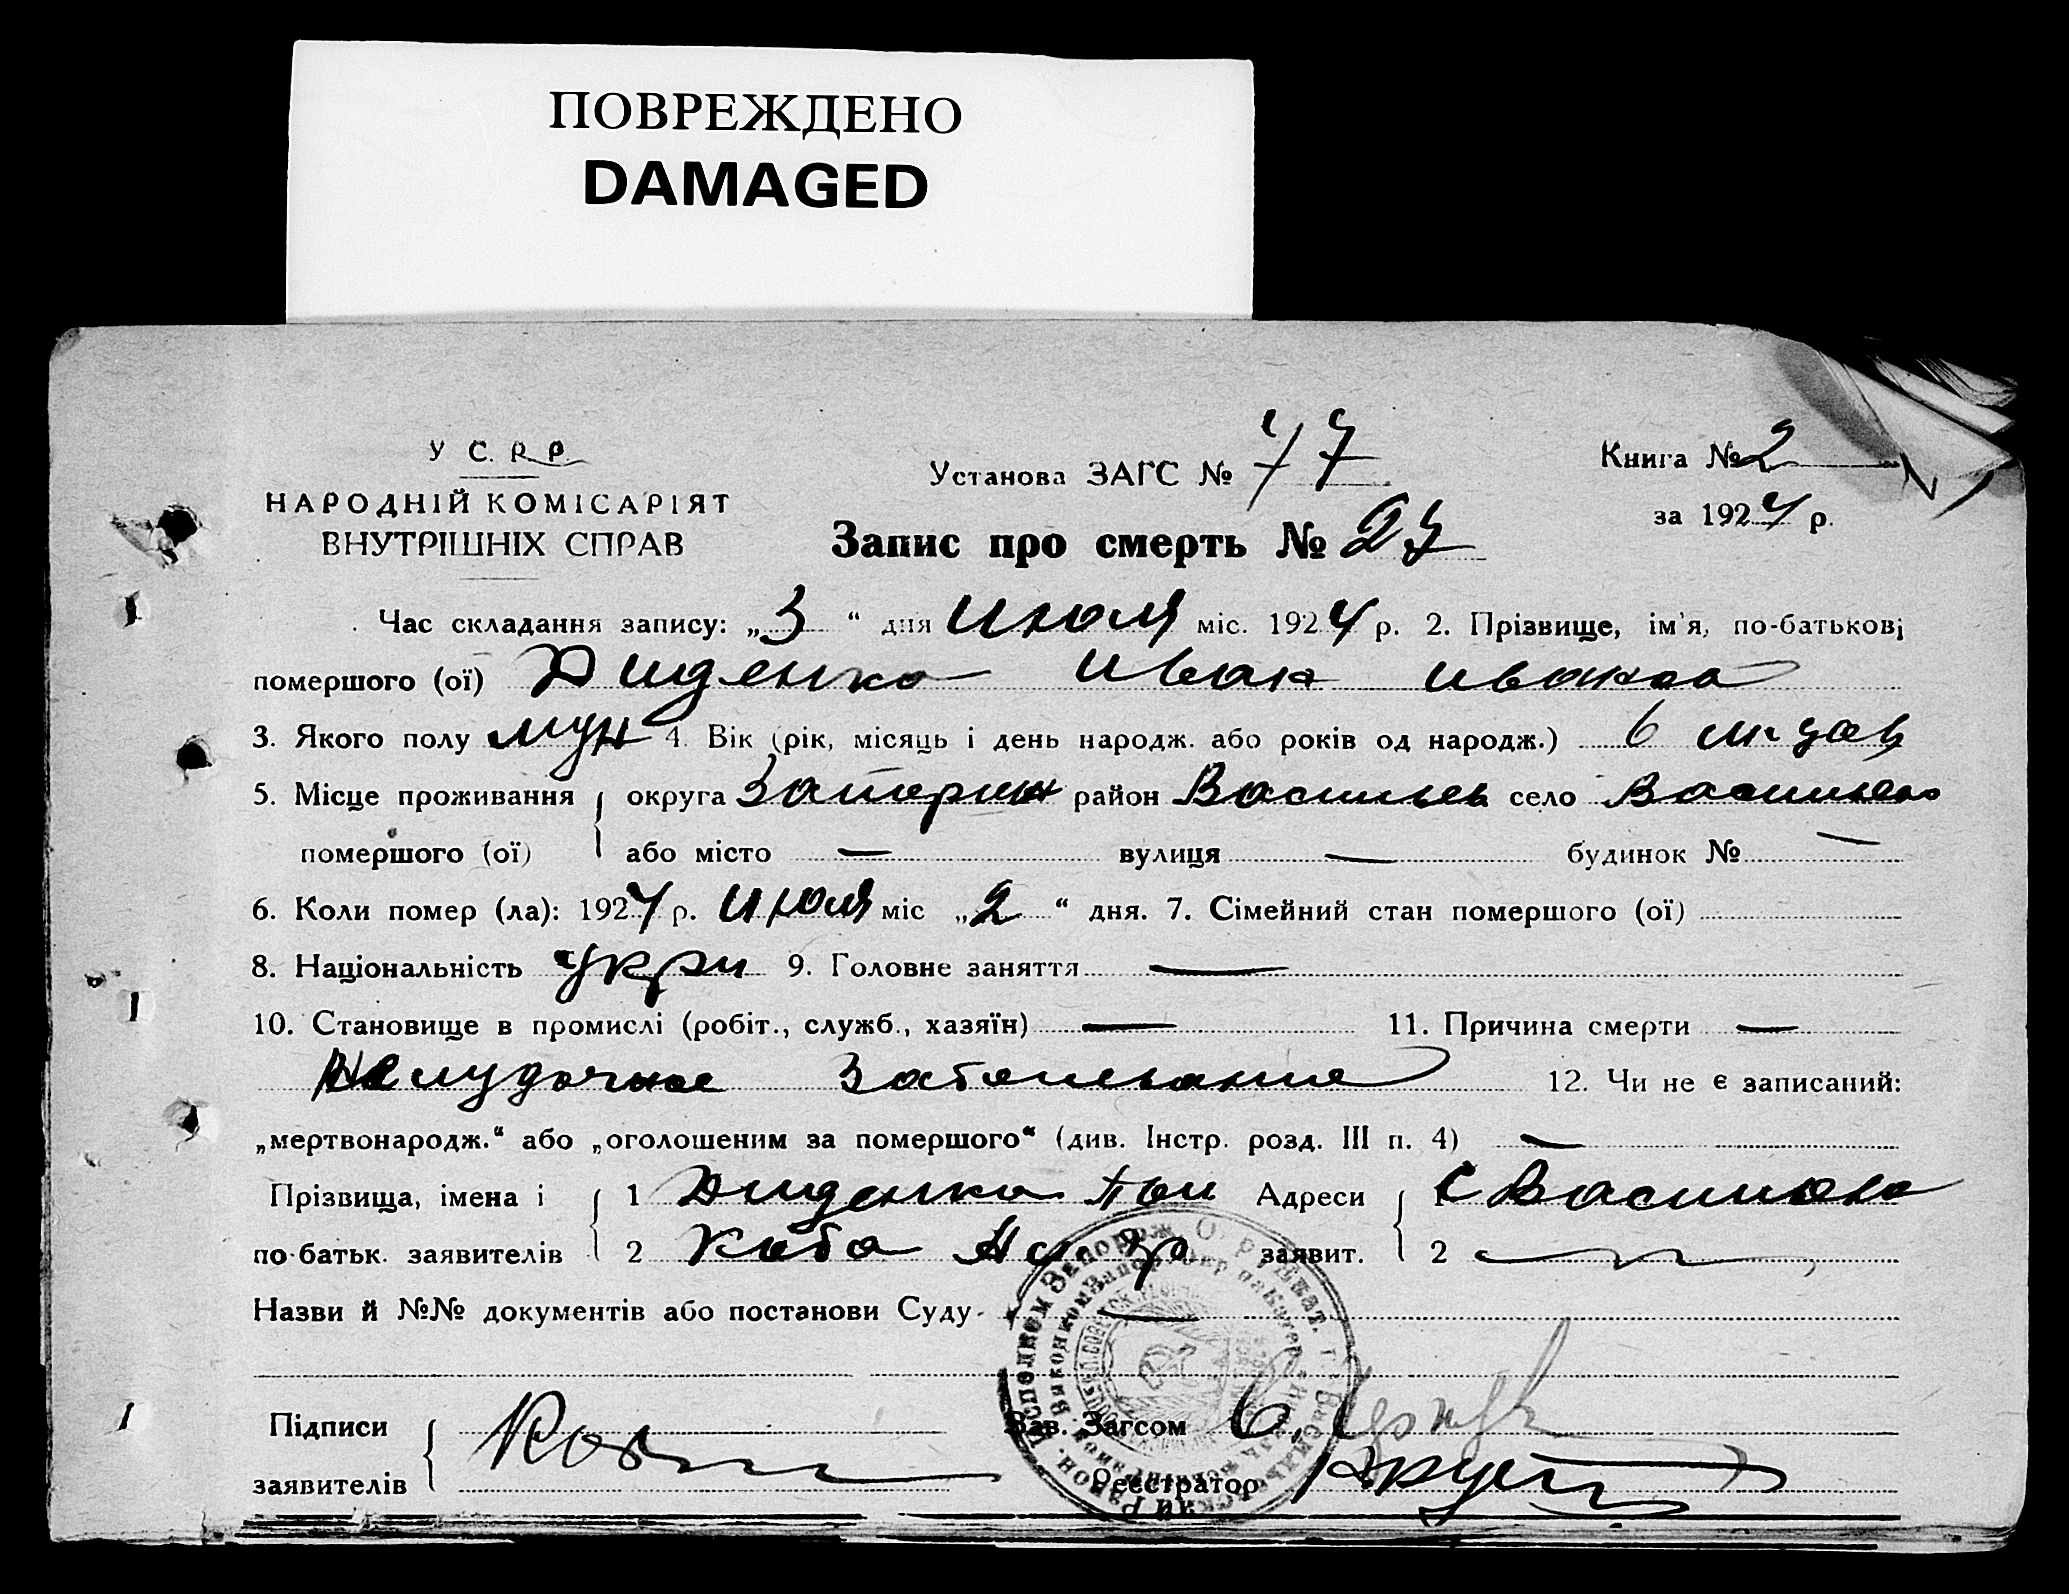 ПОВРЕЖДЕНО
DAMAGED
У С. Р. Р.
НАРОДНІЙ КОМІСАРІЯТ
ВНУТРІШНІХ СПРАВ
Установа ЗАГС № 77
Книга № 2
за 1924 р.
Запис про смерть № 27
Час складання запису: „3“ дня Июля міс. 1924 р. 2. Прізвище, ім'я, по-батькові
помершого (ої) Диденко Иван Иванов
3. Якого полу муж 4. Вік (рік, місяць і день народж. або років од народж.) 6 месяцев
5. Місце проживання округа Запориж район Васильев село Васильевка
помершого (ої) або місто — вулиця — будинок № —
6. Коли помер (ла): 1924 р. Июля міс „2“ дня. 7. Сімейний стан помершого (ої)
8. Національність укри 9. Головне заняття —
10. Становище в промислі (робіт., служб., хазяїн) — 11. Причина смерти —
Желудочное Заболевание 12. Чи не є записаний:
„мертвонародж.“ або „оголошеним за помершого“ (див. Інстр. розд. III п. 4) —
Прізвища, імена і 1 Диденко Адреси 1 с Васильевка
по-батьк. заявителів 2 заявит. 2
Назви й №№ документів або постанови Суду —
Підписи Зав. Загсом
заявителів Реєстратор